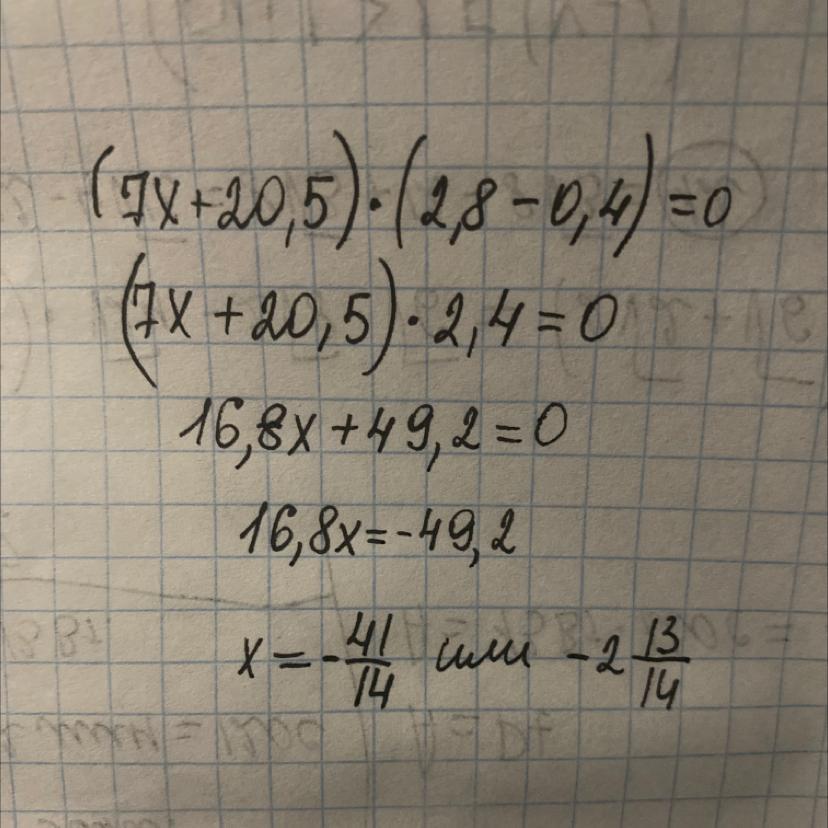 (7x+20,5)·(2,8-0,4)=0
(7x+20,5)·2,4=0
16,8x+49,2=0
16,8x=-49,2
x=-41/14 или -2 13/14